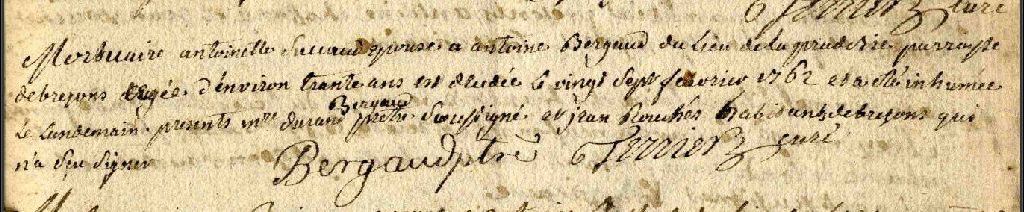 Terrier curé
Mortuaire antoinette epouse a antoine Bergaud du Lieu de la pruderie parroisse
debreзons agée d'environ trante ans est decedée Le vingt sept fevrier 1762 et a esté inhumée
Le Landemain presents mre durand Bergaud pretre soussigné et jean Rouches habitants debrezons qui
n'a sçu signer Bergaud ptre Terrier curé